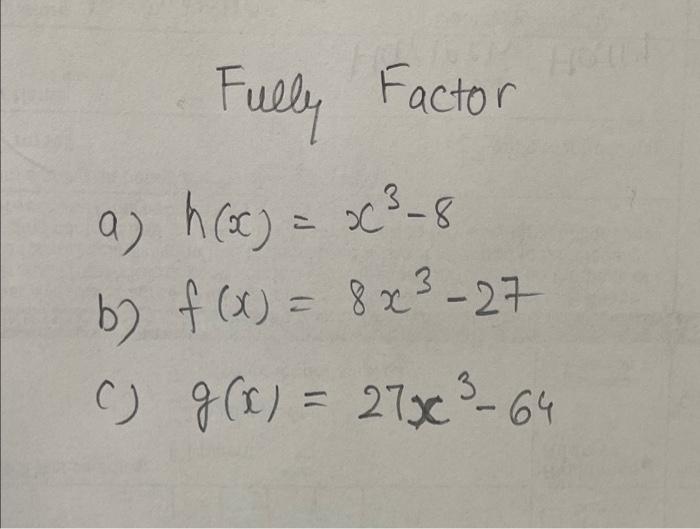 Fully Factor
a) h(x) = x³-8
b) f(x) = 8x³-27
c) g(x) = 27x³-64